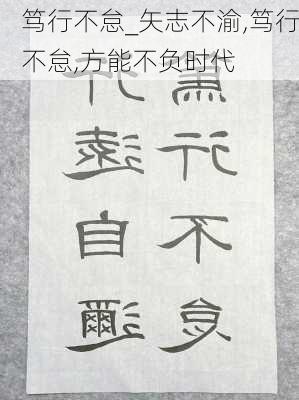 笃行不怠_矢志不渝,笃行
不怠,方能不负时代
篤行不怠
行遠自邇